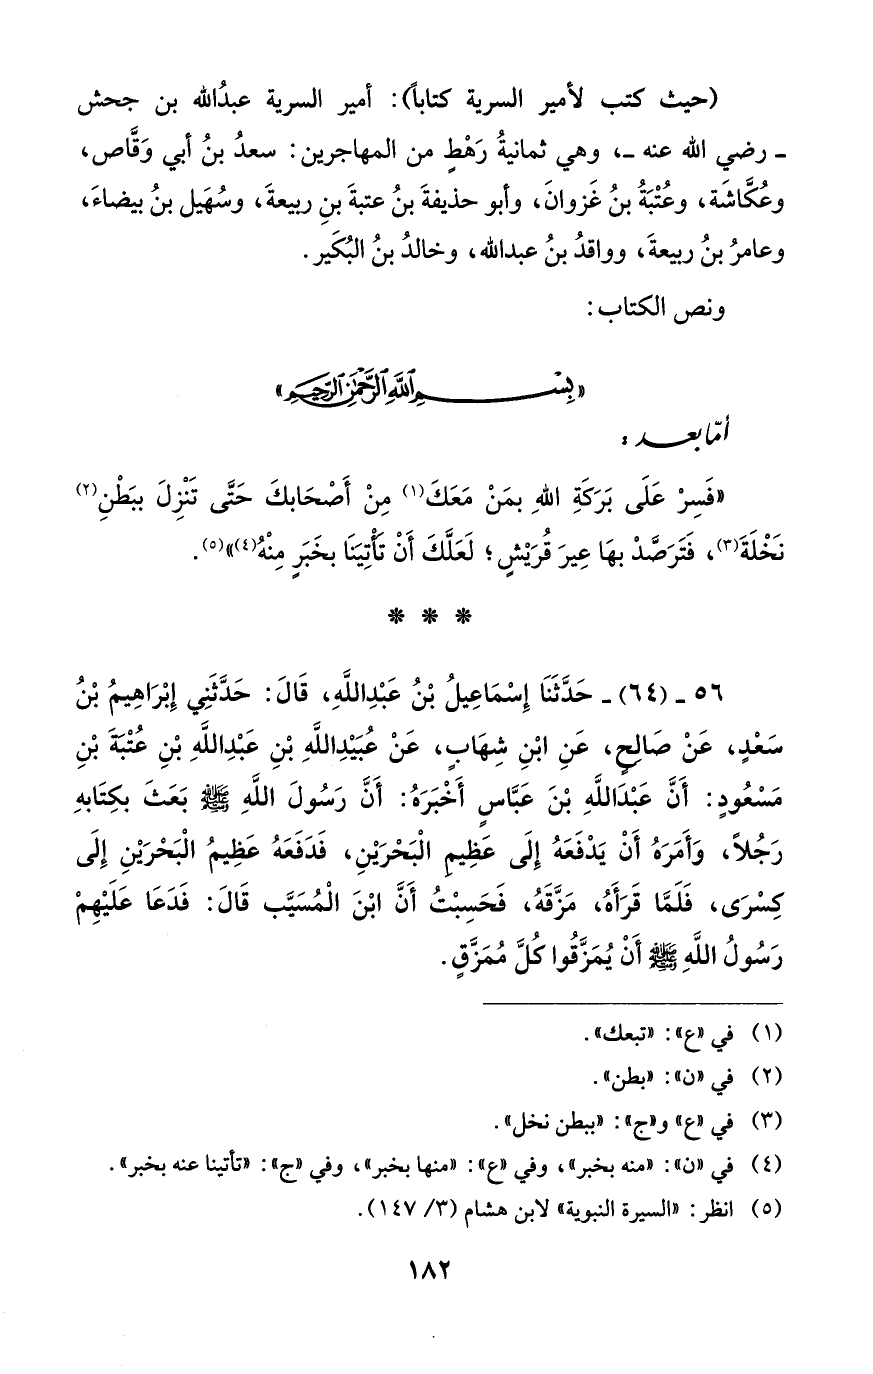 (حيث كتب لأمير السرية كتاباً): أمير السرية عبدُالله بن جحش
ـ رضي الله عنه ـ، وهي ثمانيةُ رَهْطٍ من المهاجرين: سعدُ بنُ أبي وَقَّاص،
وعُكَّاشَة، وعُتْبَةُ بنُ غَزوانَ، وأبو حذيفةَ بنُ عتبةَ بنِ ربيعةَ، وسُهَيل بنُ بيضاءَ،
وعامرُ بنُ ربيعةَ، وواقدُ بنُ عبدالله، وخالدُ بنُ البُكَير.
ونص الكتاب:
«بِسْمِ اللَّهِ الرَّحْمَٰنِ الرَّحِيمِ»
أمّا بعد:
«فَسِرْ عَلَى بَرَكَةِ اللهِ بمَنْ مَعَكَ(١) مِنْ أَصْحَابكَ حَتَّى تَنْزِلَ ببَطْنِ(٢)
نَخْلَةَ(٣)، فَتَرَصَّدْ بهَا عِيرَ قُرَيْشٍ؛ لَعَلَّكَ أَنْ تَأْتِيَنَا بخَبَرٍ مِنْهُ(٤)»(٥).
* * *
٥٦ ـ (٦٤) ـ حَدَّثَنَا إِسْمَاعِيلُ بْنُ عَبْدِاللَّهِ، قَالَ: حَدَّثَنِي إِبْرَاهِيمُ بْنُ
سَعْدٍ، عَنْ صَالِحٍ، عَنِ ابْنِ شِهَابٍ، عَنْ عُبَيْدِاللَّهِ بْنِ عَبْدِاللَّهِ بْنِ عُتْبَةَ بْنِ
مَسْعُودٍ: أَنَّ عَبْدَاللَّهِ بْنَ عَبَّاسٍ أَخْبَرَهُ: أَنَّ رَسُولَ اللَّهِ ﷺ بَعَثَ بكِتَابهِ
رَجُلاً، وَأَمَرَهُ أَنْ يَدْفَعَهُ إِلَى عَظِيمِ الْبَحْرَيْنِ، فَدَفَعَهُ عَظِيمُ الْبَحْرَيْنِ إِلَى
كِسْرَى، فَلَمَّا قَرَأَهُ، مَزَّقَهُ، فَحَسِبْتُ أَنَّ ابْنَ الْمُسَيَّب قَالَ: فَدَعَا عَلَيْهِمْ
رَسُولُ اللَّهِ ﷺ أَنْ يُمَزَّقُوا كُلَّ مُمَزَّقٍ.
(١) في «ع»: «تبعك».
(٢) في «ن»: «بطن».
(٣) في «ع» و«ج»: «ببطن نخل».
(٤) في «ن»: «منه بخبر»، وفي «ع»: «منها بخبر»، وفي «ج»: «تأتينا عنه بخبر».
(٥) انظر: «السيرة النبوية» لابن هشام (٣/ ١٤٧).
١٨٢